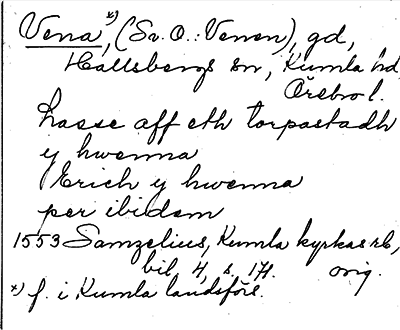 Vena,*) (Sv. O.: Venen), gd,
Hallsbergs sn, Kumla hd,
Örebro l.
Lasse aff eth torpastadh
y hwenna
Erich y hwenna
per ibidem
1553 Samzelius, Kumla kyrkas rb,
bil. 4, s. 171. orig.
*) f. i Kumla landsförs.